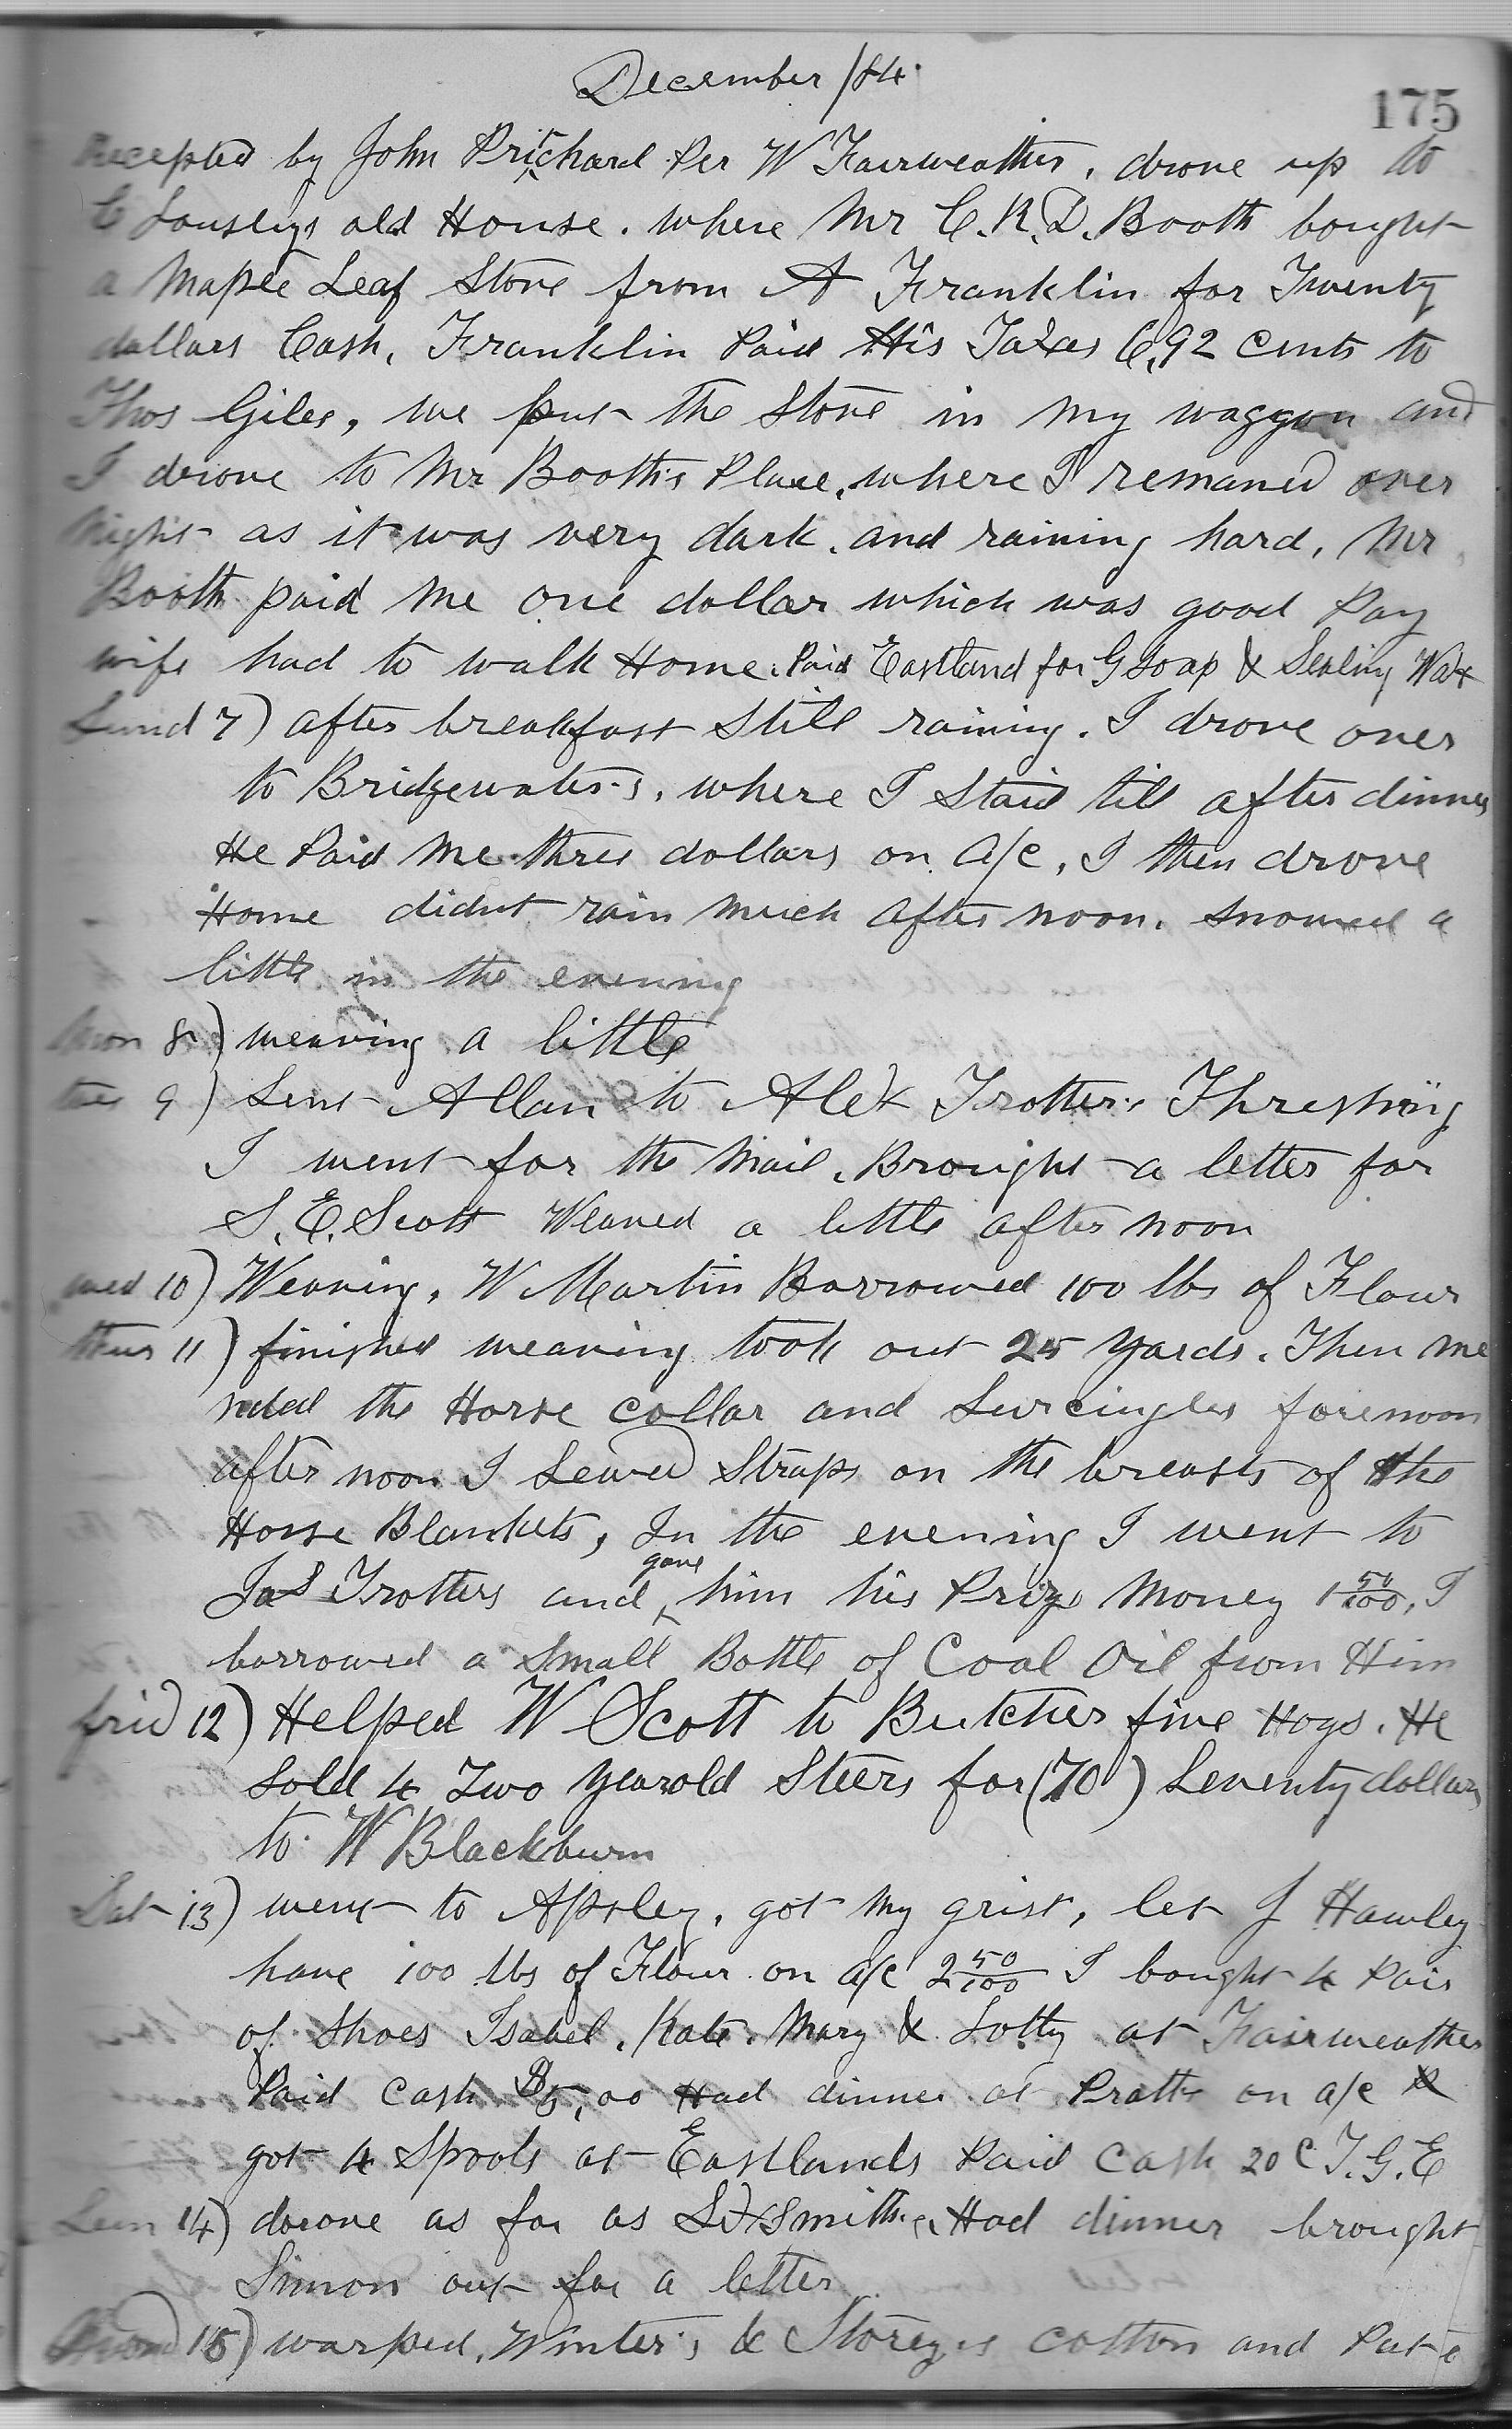 December /84.
175
Recepted by John Prichard Per W Fairweather, drove up to
C Lousleys old House. where Mr C.R.D. Booth bought
a Maple Leaf Stove from A Franklin for Twenty
dollars Cash, Franklin Paid His Taxes 6,92 cents to
Thos Giles, we put the Stove in my waggon and
I drove to Mr Booth's Place, where I remaned over
Night as it was very dark. and raining hard, Mr
Booth paid me one dollar which was good Pay
wife had to walk Home. Paid Eastland for G Soap & Sealing Wax
Sund 7) after breakfast Still raining. I drove over
to Bridgewater's, where I Staid till after dinner
He Paid me three dollars on a/c, I then drove
Home didnt rain much after noon. snowed a
little in the evening
Mon 8) weaving a little
tues 9) Sent Allan to Alex Trotters Threshing
I went for the Mail, Brought a letter for
S.E. Scott Weaved a little after noon
wed 10) Weaving, W Martin Borrowed 100 lbs of Flour
thurs 11) finished weaving took out 25 yards. Then me
nded the Horse collar and Surcingles forenoon
after noon I Sewed Straps on the breasts of the
Horse Blankets, In the evening I went to
Jas Trotters and gave him his Prize Money 1 50/100, I
borrowed a Small Bottle of Coal Oil from Him
frid 12) Helped W Scott to Butcher five Hogs. He
Sold 4 Two Yearold Steers for (70) Seventy dollars
to W Blackburn
Sat 13) went to Apsley, got my grist, let J Hawley
have 100 lbs of Flour on a/c 2 50/100 I bought 4 Pair
of Shoes Isabel, Kate, Mary & Lotty at Fairweather
Paid Cash $5,00 Had dinner at Pratts on a/c &
got 4 Spools at Eastlands Paid Cash 20 c T.G.E
Sun 14) drove as far as Smiths, Had dinner brought
Simon out for a letter
Mond 15) warped, Winter's & Storeys cotton and Put a